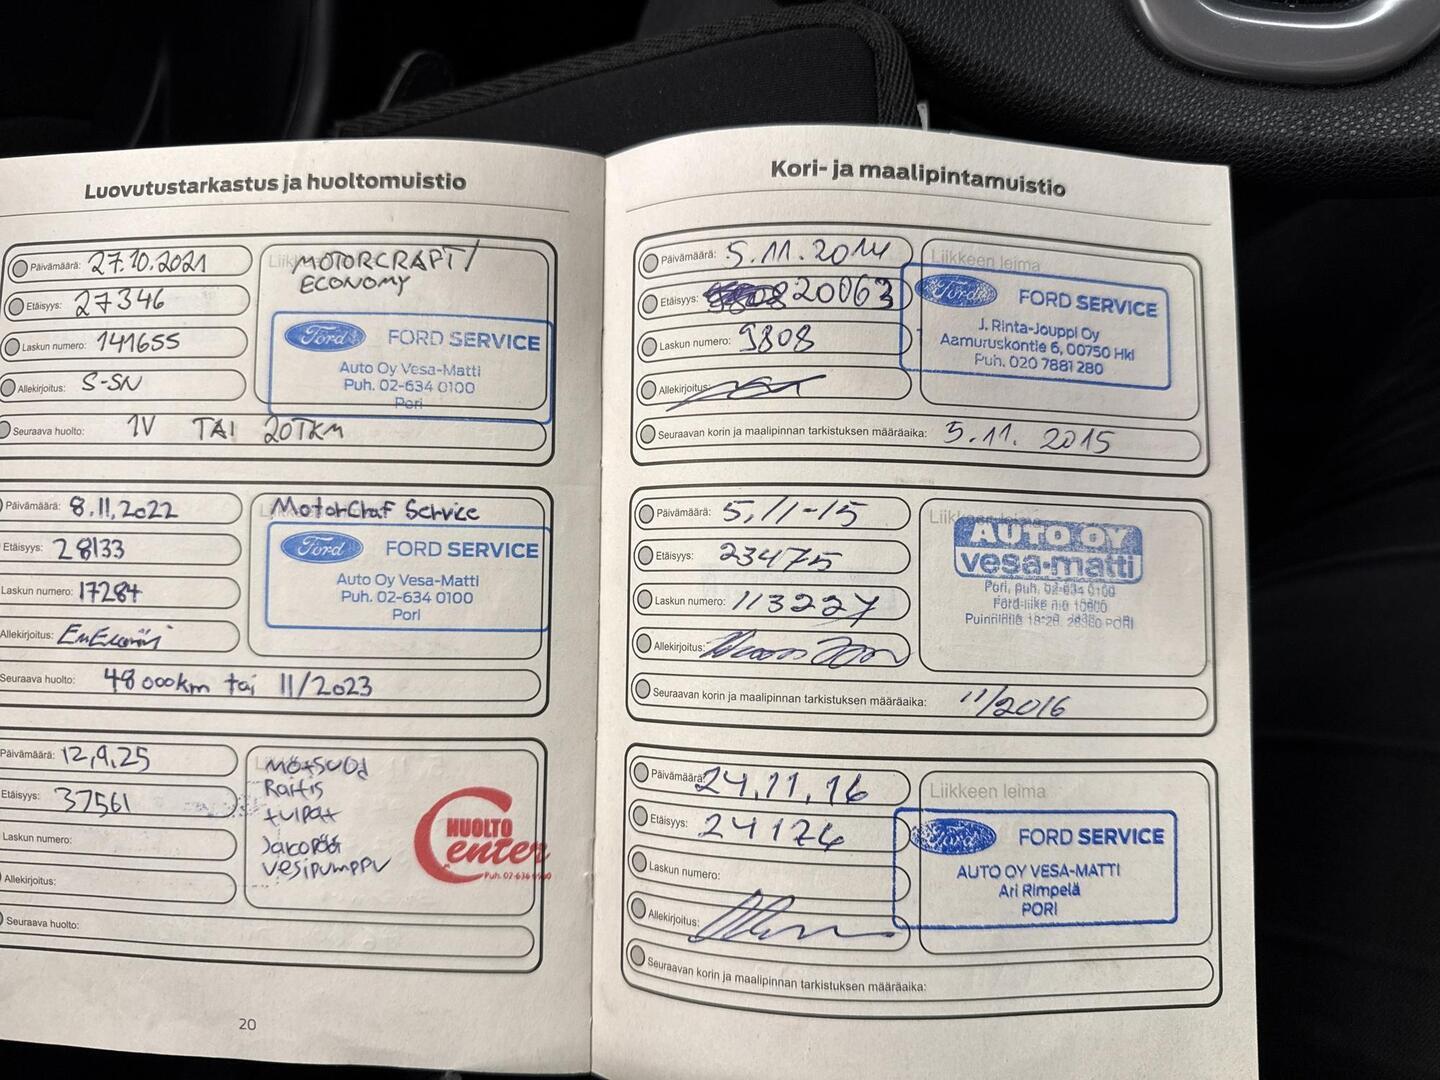 Luovutustarkastus ja huoltomuistio
Päivämäärä: 27.10.2021
Etäisyys: 27346
Laskun numero: 141655
Allekirjoitus: S-SN
MOTORCRAFT/
ECONOMY
Ford FORD SERVICE
Auto Oy Vesa-Matti
Puh. 02-634 0100
Pori
Seuraava huolto: 1V TAI 20TKM
Päivämäärä: 8.11.2022
Etäisyys: 28133
Laskun numero: 17284
Allekirjoitus:
MotorCraf Service
Ford FORD SERVICE
Auto Oy Vesa-Matti
Puh. 02-634 0100
Pori
Seuraava huolto: 48000km tai 11/2023
Päivämäärä: 12,9,25
Etäisyys: 37561
Laskun numero:
Allekirjoitus:
Raitis
tulpat
Jakopää
vesipumppu
HUOLTO
Center
Seuraava huolto:
20
Kori- ja maalipintamuistio
Päivämäärä: 5.11.2014
Etäisyys: 20063
Laskun numero: 9808
Allekirjoitus:
Liikkeen leima
Ford FORD SERVICE
J. Rinta-Jouppi Oy
Aamuruskontie 6, 00750 Hki
Puh. 020 7881 280
Seuraavan korin ja maalipinnan tarkistuksen määräaika: 5.11. 2015
Päivämäärä: 5,11-15
Etäisyys: 23475
Laskun numero: 113227
Allekirjoitus:
Liikkeen leima
AUTO OY
vesa-matti
Pori, puh. 02-634 0100
Ford-liike n:o 10600
PORI
Seuraavan korin ja maalipinnan tarkistuksen määräaika: 11/2016
Päivämäärä: 24.11.16
Etäisyys: 24174
Laskun numero:
Allekirjoitus:
Liikkeen leima
Ford FORD SERVICE
AUTO OY VESA-MATTI
Ari Rimpelä
PORI
Seuraavan korin ja maalipinnan tarkistuksen määräaika: